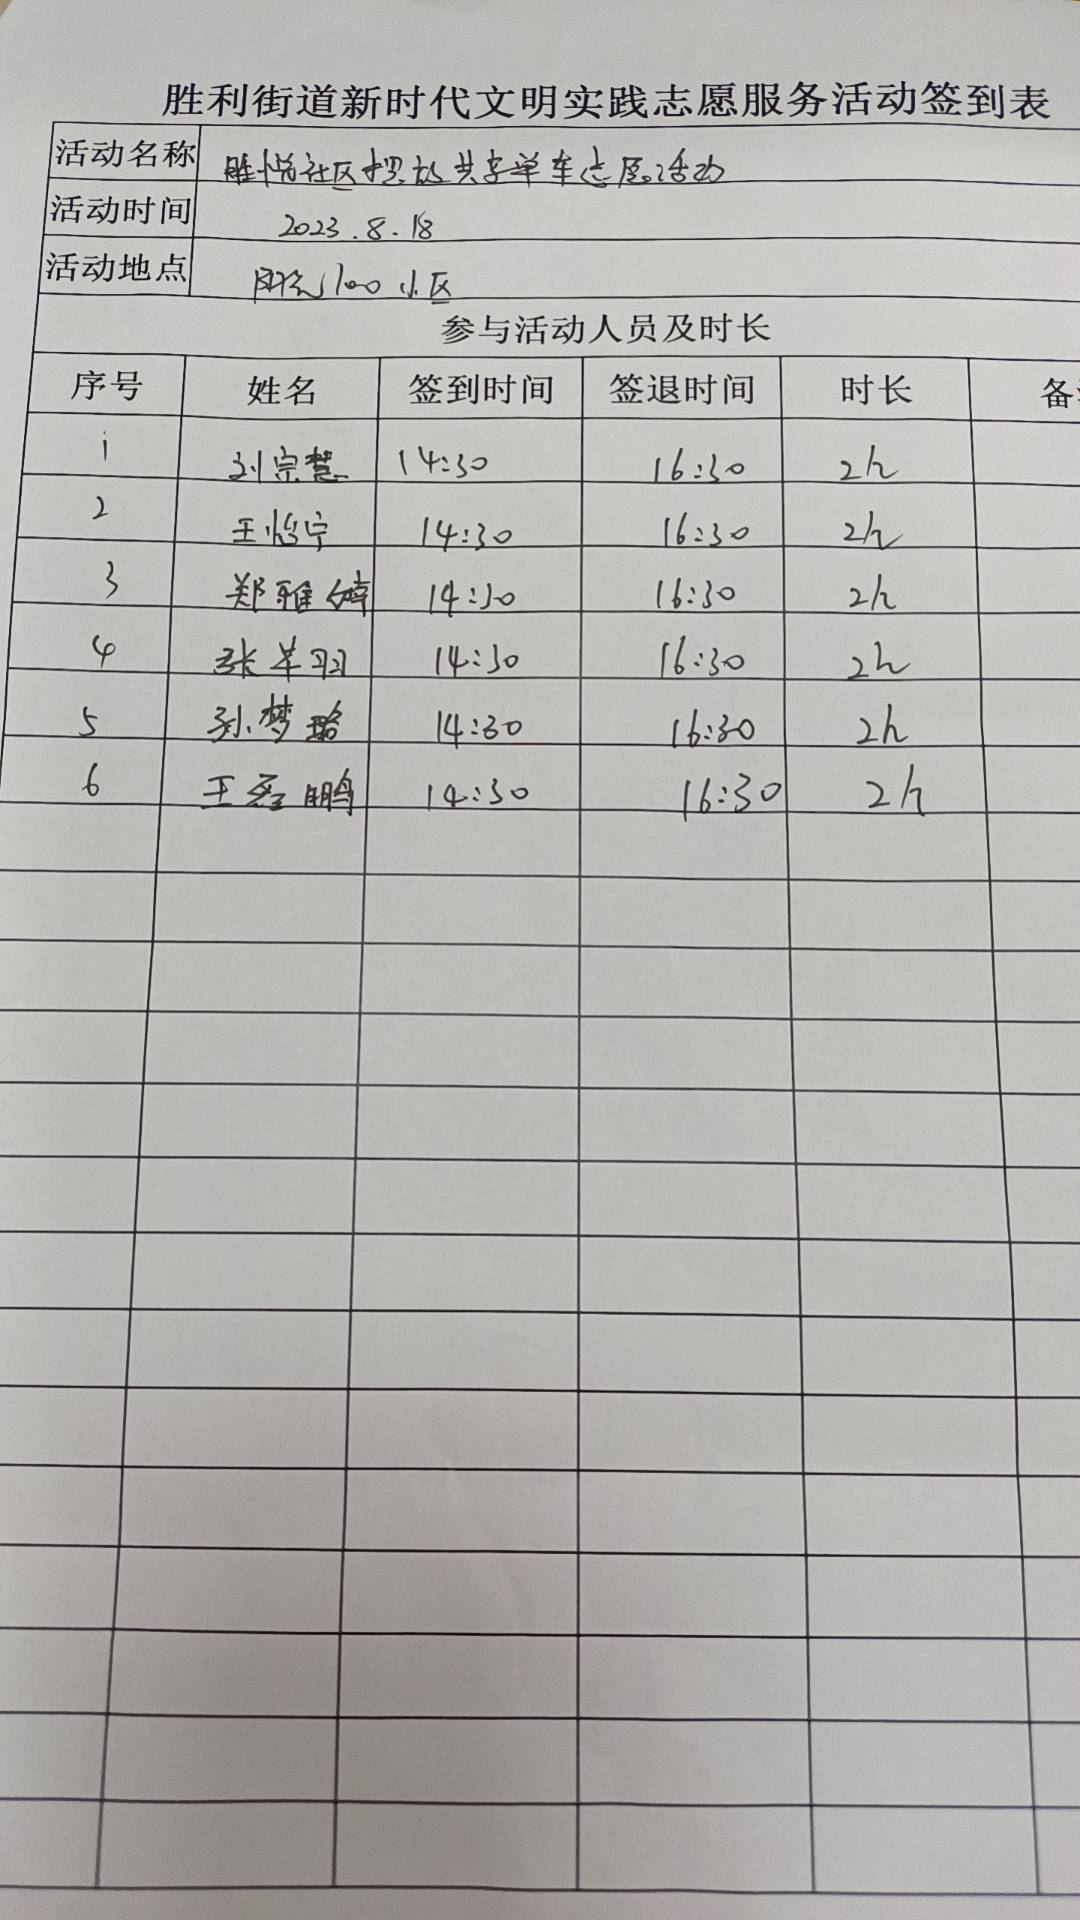 胜利街道新时代文明实践志愿服务活动签到表
活动名称 胜悦社区摆放共享单车志愿活动
活动时间 2023.8.18
活动地点 阳光100小区
参与活动人员及时长
序号 姓名 签到时间 签退时间 时长 备
1 刘宗慧 14:30 16:30 2h
2 王怡宁 14:30 16:30 2h
3 郑雅婷 14:30 16:30 2h
4 张羊羽 14:30 16:30 2h
5 孙梦璐 14:30 16:30 2h
6 王 鹏 14:30 16:30 2h